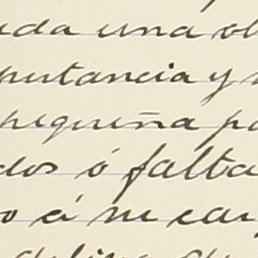 uda una ob
putancia y
pequeña pa
dos ó falta
o á su car